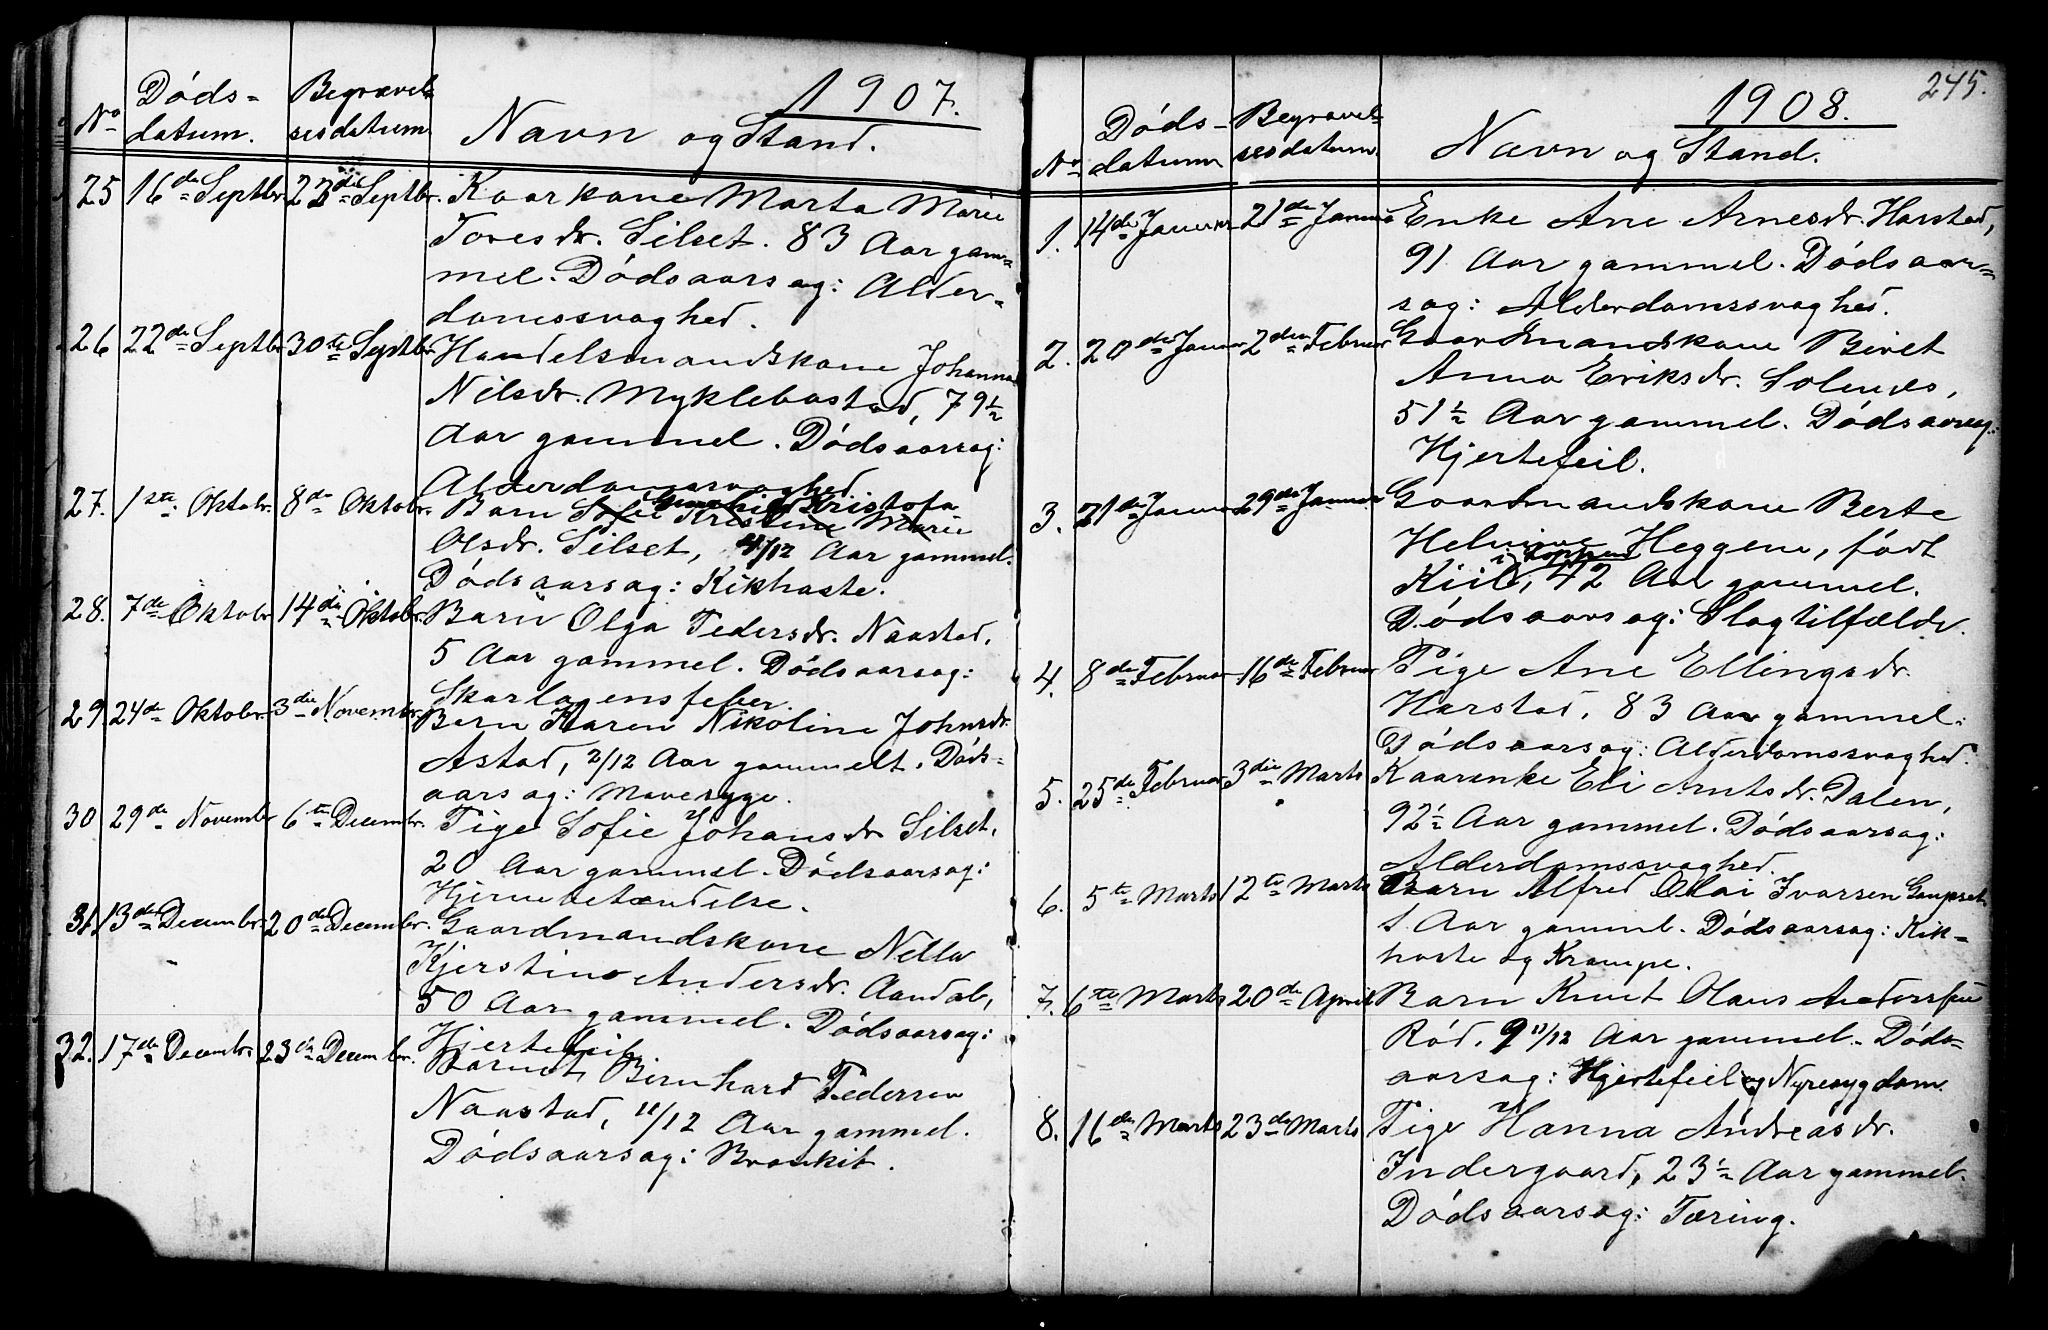 1907.
No Døds- Begravel-
datum. sesdatum. Navn og Stand.
25 16de Septbr. 23de Septbr. Kaarkone Marta Marie
Toresdr. Silset. 83 Aar gam-
mel. Dødsaarsag: Alder-
domssvaghed.
26 22de Septbr. 30te Septbr. Handelsmandskone Johanna
Nilsdr. Myklebostad, 79½
Aar gammel. Dødsaarsag:
Alderdomssvaghed
27. 1ste Oktobr. 8de Oktobr. Barn Sofie Kristine Marie
Olsdr. Silset, 4/12 Aar gammel.
Dødsaarsag: Kikhoste.
28. 7de Oktobr. 14de Oktobr. Barn Olga Pedersdr. Naastad,
5 Aar gammel. Dødsaarsag:
Skarlagensfeber.
29. 24de Oktobr. 3die Novembr. Barn Karen Nikoline Johnsdr.
Astad, 2/12 Aar gammelt. Døds-
aarsag: Mavesyge.
30 29de Novembr 6te Decembr. Pige Sofie Johansdr Silset,
20 Aar gammel. Dødsaarsag:
Hjernebetændelse.
31. 13de Decembr. 20de Decembr. Gaardmandskone Nella
Kjerstina Andersdr. Aandal,
50 Aar gammel. Dødsaarsag:
Hjertefeil.
32. 17de Decembr. 23de Decembr. Barnet Bernhard Pedersen
Naastad, 11/12 Aar gammel.
Dødsaarsag: Bronkit.
245.
1908.
No Døds- Begravel-
datum sesdatum. Navn og Stand.
1. 14de Januar 21de Januar Enke Ane Arnesdr. Harstad,
91 Aar gammel. Dødsaar-
sag: Alderdomssvaghed.
2. 20de Januar 2den Februar Gaardmandskone Beret
Anna Eriksdr. Solenes,
51½ Aar gammel. Dødsaarsag:
Hjertefeil.
3. 21de Januar 29de Januar Gaardmandskone Berte
Helmine Heggene, født
Kiil, 42 Aar gammel.
Dødsaarsag: Slagtilfælde.
4. 8de Februar 16de Februar Pige Ane Ellingsdr.
Harstad, 83 Aar gammel.
Dødsaarsag: Alderdomssvaghed.
5. 25de Februar 3die Marts Kaarenke Eli Arntsdr. Dalen,
92½ Aar gammel. Dødsaarsag:
Alderdomssvaghed.
6. 5te Marts 12te Marts Barn Alfred Olai Ivarsen Gaupset
1 Aar gammel. Dødsaarsag: Kik-
hoste og Krampe.
7. 6te Marts 20de April Barn Knut Olaus Andersen
Rød, 9 11/12 Aar gammel. Døds-
aarsag: Hjertefeil og Nyresygdom.
8. 16de Marts 23de Marts Pige Hanna Andreasdr.
Indergaard, 23½ Aar gammel.
Dødsaarsag: Tæring.